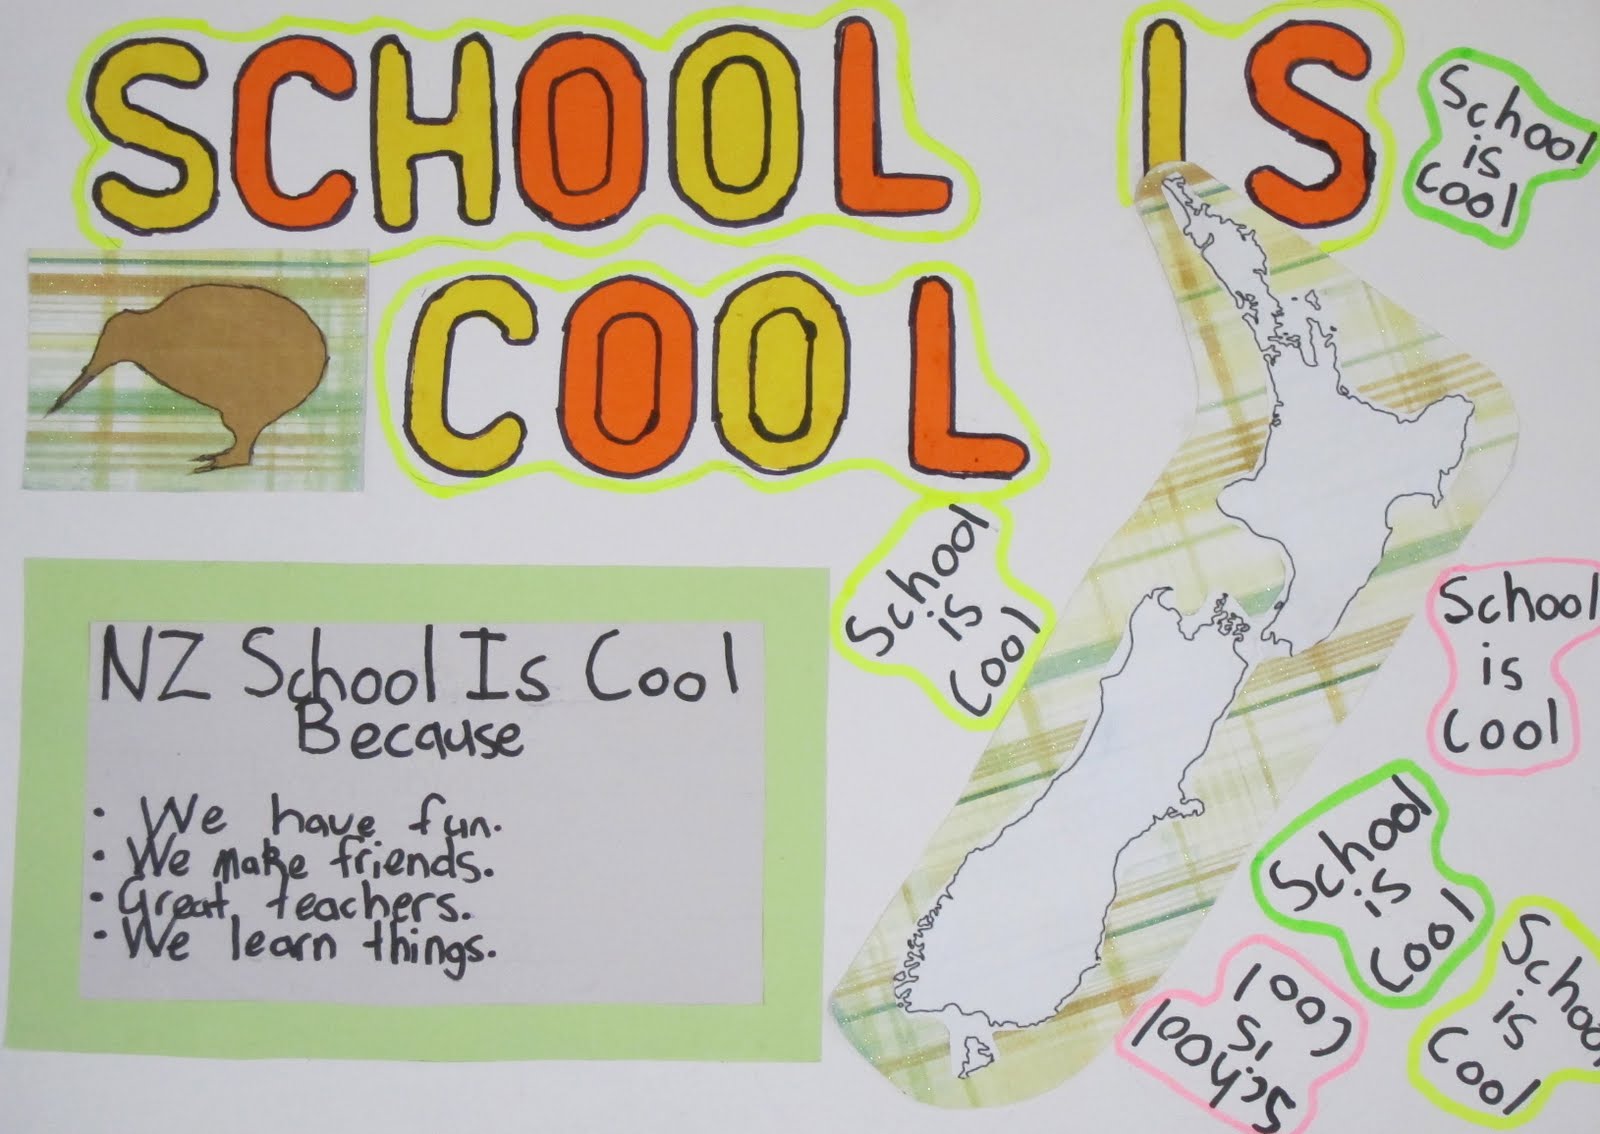 SCHOOL IS
COOL
School
is
cool
School
is
Cool
School
is
Cool
NZ School Is Cool
Because
• We have fun.
• We make friends.
• Great teachers.
• We learn things.
School
is
Cool
School
is
Cool
School
is
Cool